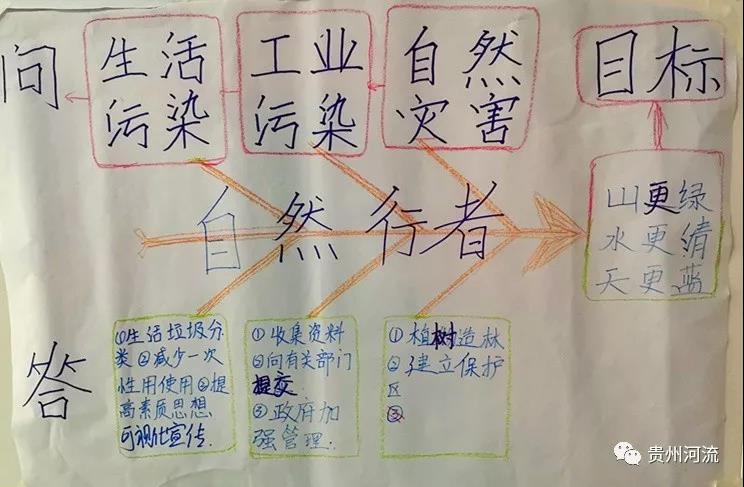 问
生活
污染
工业
污染
自然
灾害
目标
自然行者
山更绿
水更
天更蓝
答
①生活垃圾分
类②减少一次
性用使用③提
高素质思想
可视化宣传.
①收集资料
②向有关部门
提交.
③政府加
强管理.
①植树造林
②建立保护
区
③
贵州河流